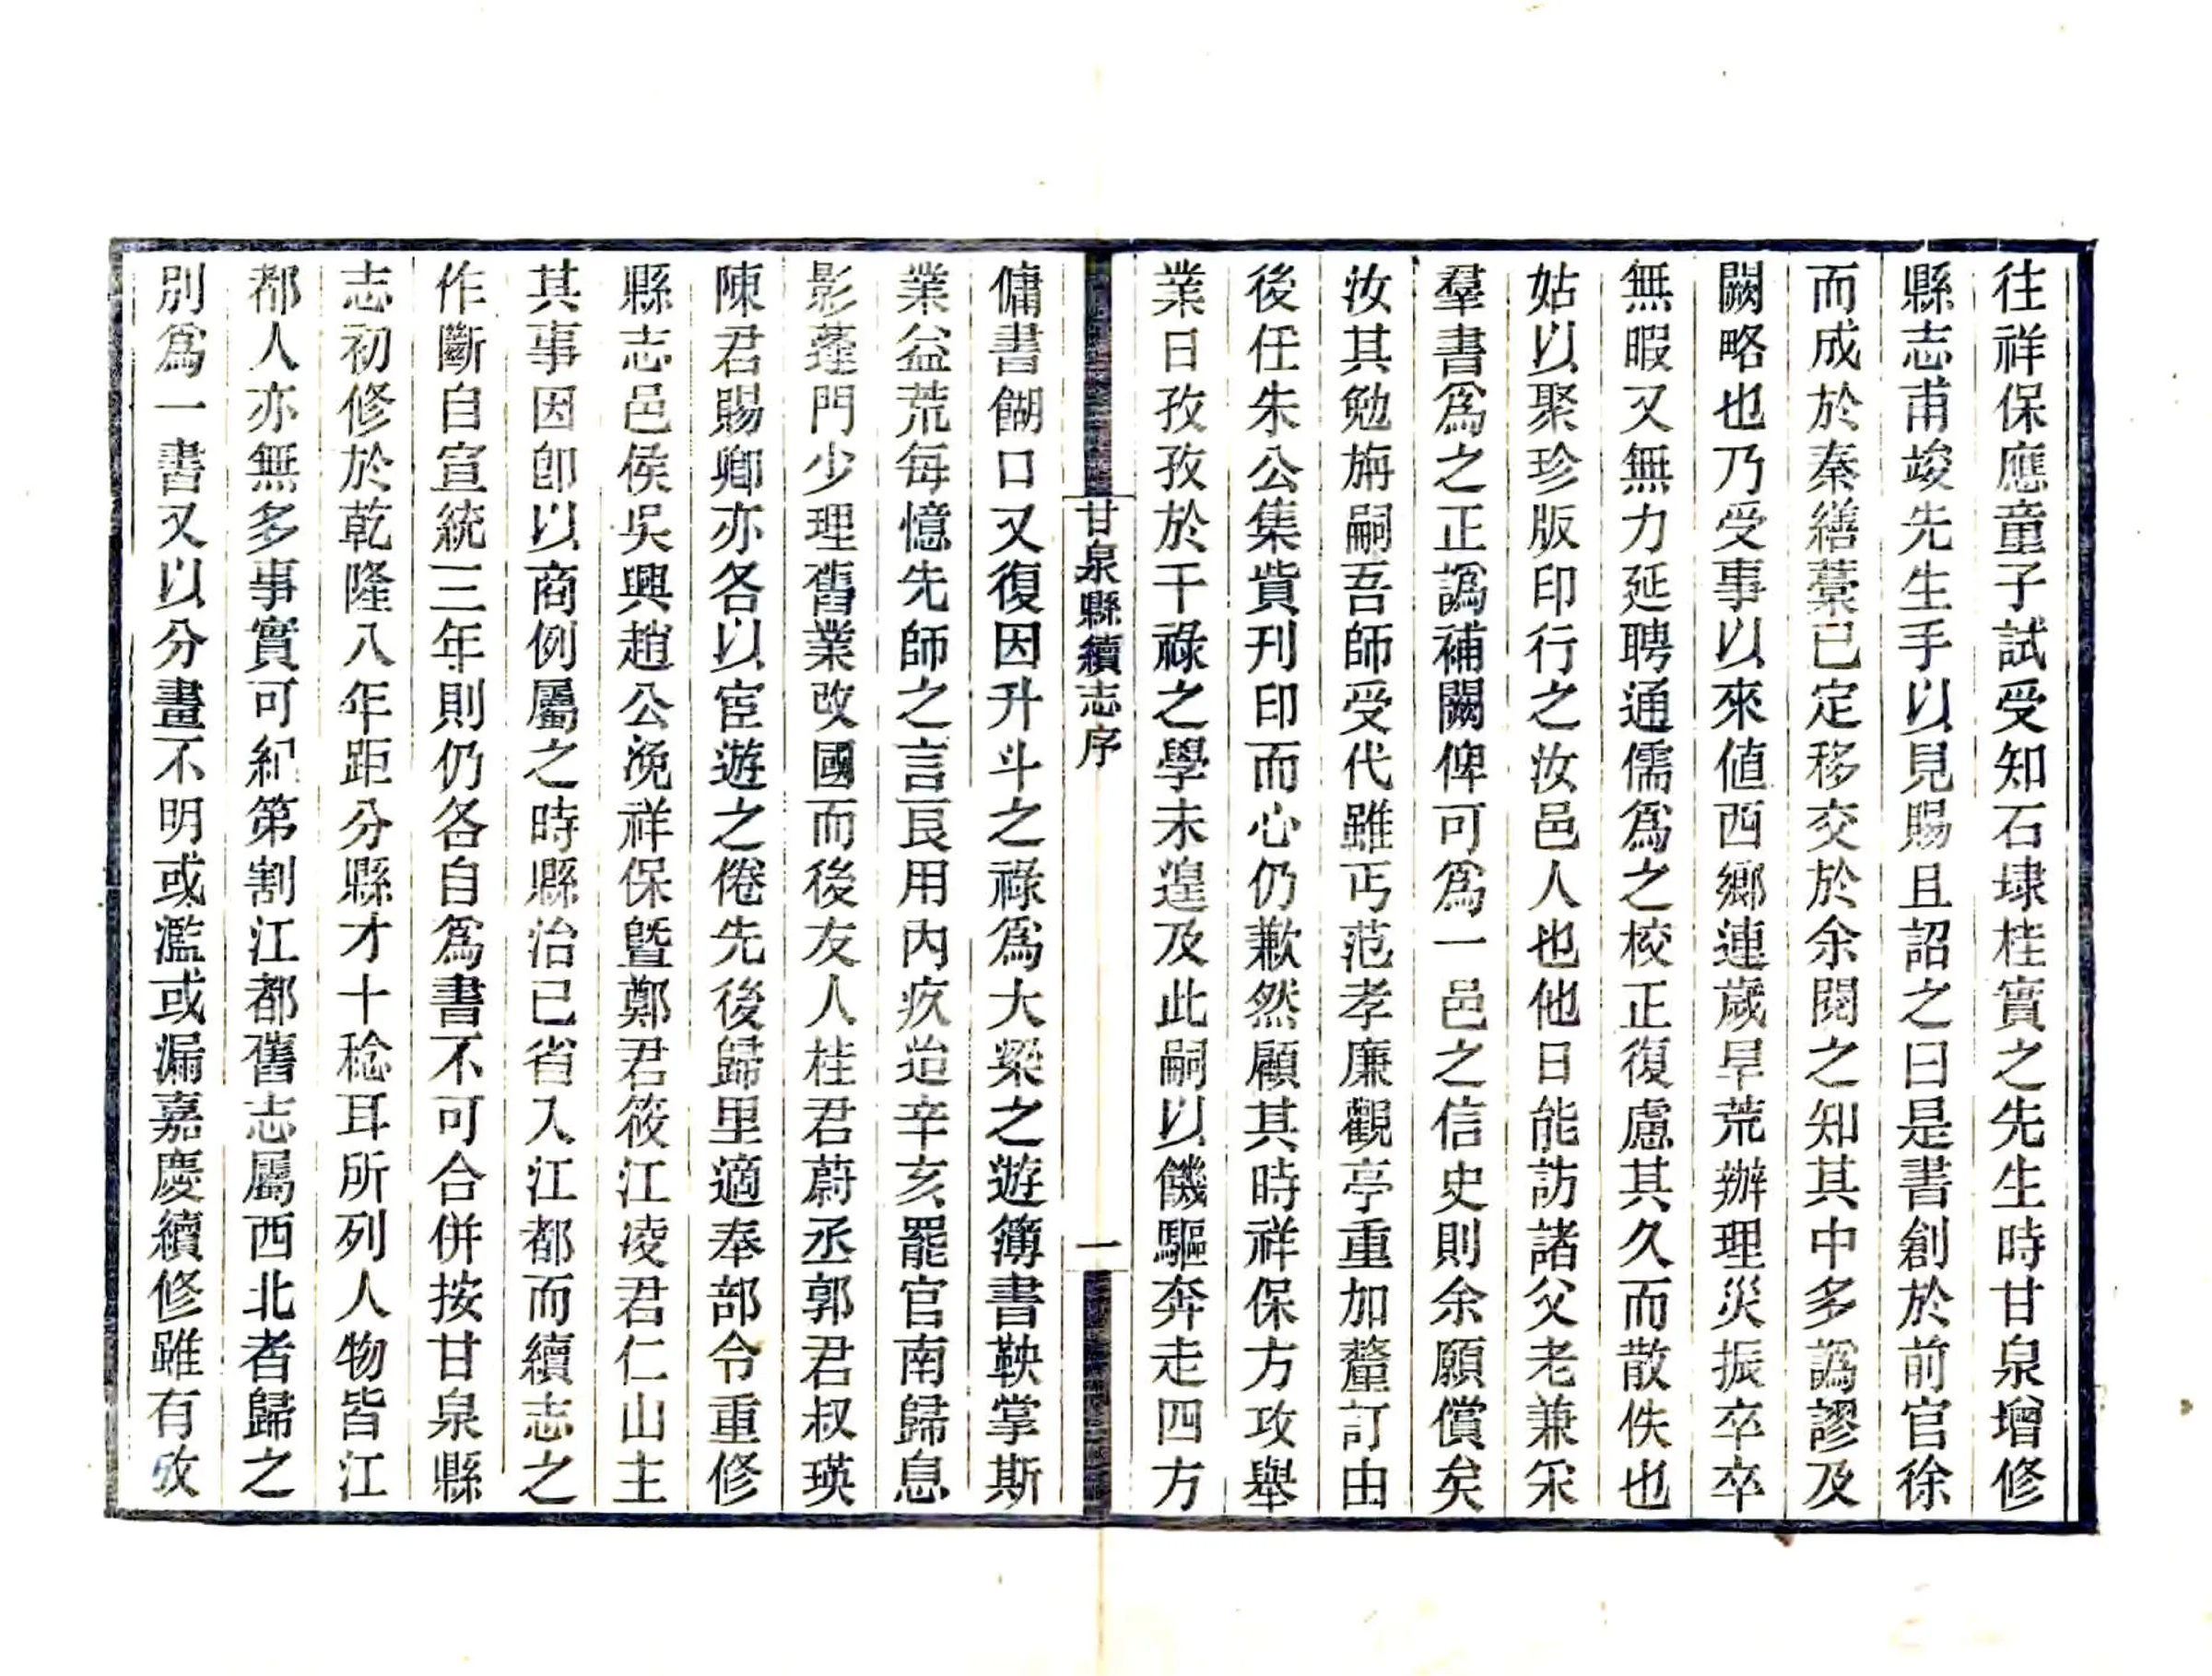 往祥保應童子試受知石埭桂實之先生時甘泉增修
縣志甫竣先生手以見賜且詔之曰是書創於前官徐
而成於秦繕藁已定移交於余閱之知其中多譌謬及
闕略也乃受事以來値西鄉連歲旱荒辦理災振卒卒
無暇又無力延聘通儒爲之校正復慮其久而散佚也
姑以聚珍版印行之汝邑人也他日能訪諸父老兼采
羣書爲之正譌補闕俾可爲一邑之信史則余願償矣
汝其勉旃嗣吾師受代雖丐范孝廉觀亭重加釐訂由
後任朱公集貲刊印而心仍歉然顧其時祥保方攻舉
業日孜孜於干祿之學未遑及此嗣以饑驅奔走四方
甘泉縣續志序
一
傭書餬口又復因升斗之祿爲大梁之遊簿書鞅掌斯
業益荒每憶先師之言艮用內疚迨辛亥罷官南歸息
影蓬門少理舊業改國而後友人桂君蔚丞郭君叔瑛
陳君賜卿亦各以宦遊之倦先後歸里適奉部令重修
縣志邑侯吳興趙公浼祥保曁鄭君筱江凌君仁山主
其事因卽以商例屬之時縣治已省入江都而續志之
作斷自宣統三年則仍各自爲書不可合併按甘泉縣
志初修於乾隆八年距分縣才十稔耳所列人物皆江
都人亦無多事實可紀第割江都舊志屬西北者歸之
別爲一書又以分畫不明或濫或漏嘉慶續修雖有攷